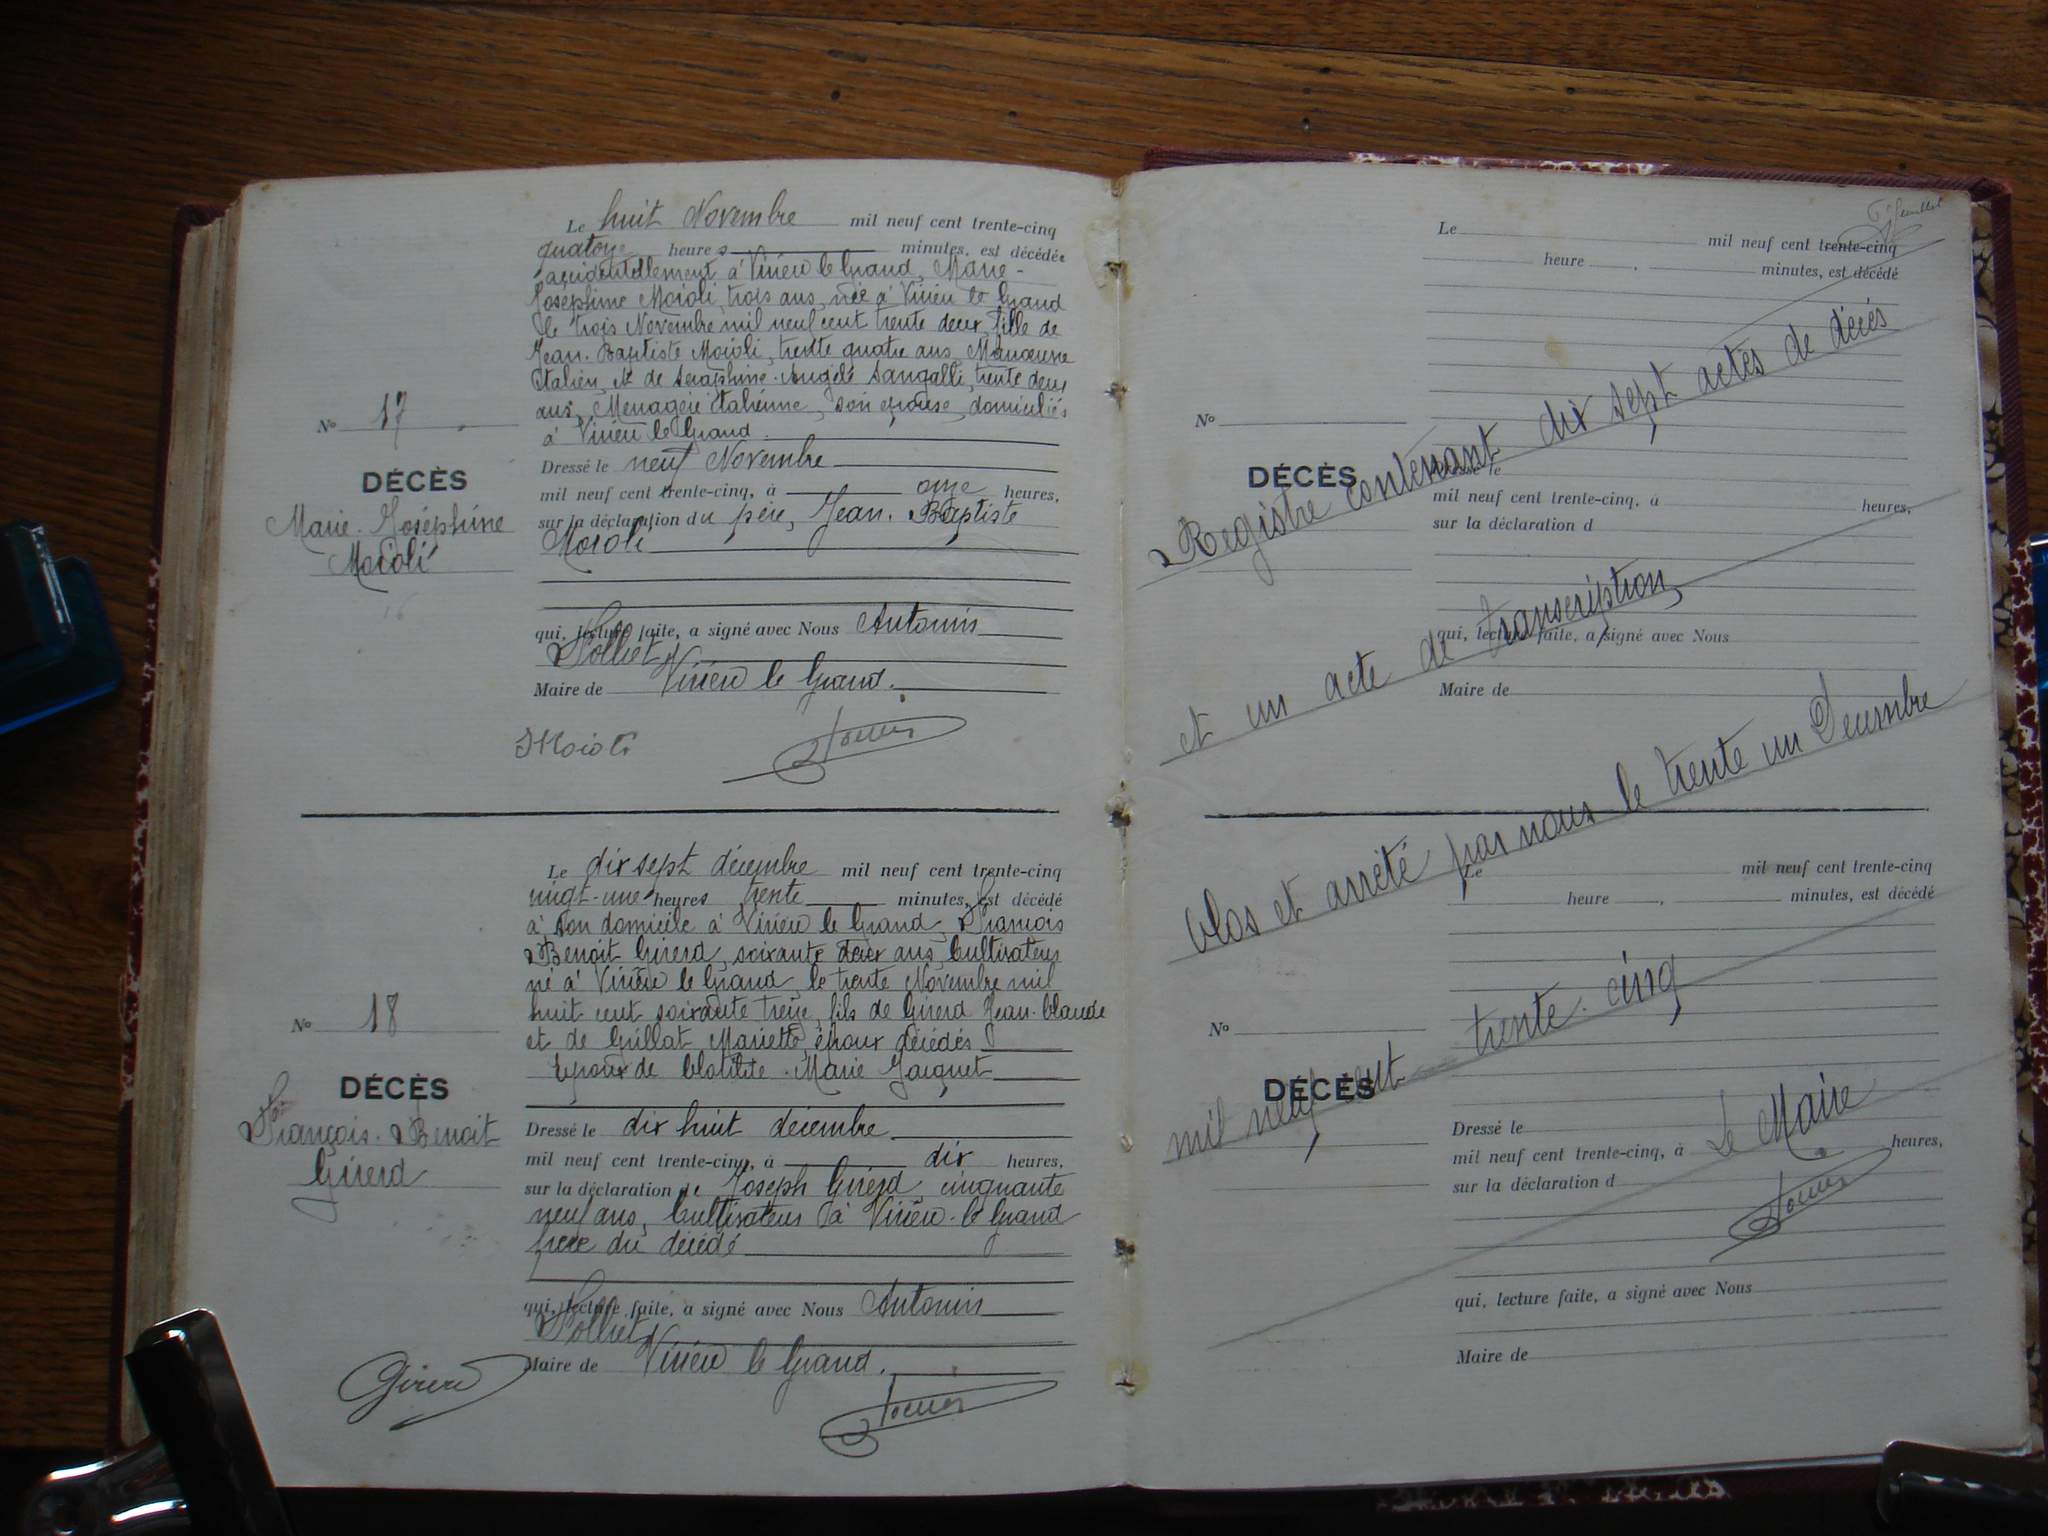 Le huit Novembre mil neuf cent trente-cinq
quatorze heures minutes, est décédée
accidentellement à Virieu le Grand, Marie-
Joséphine Moioli, trois ans, née à Virieu le Grand
le trois Novembre mil neuf cent trente deux, fille de
Jean-Baptiste Moioli, trente quatre ans, Manœuvre
Italien, & de Séraphine-Angèle Sangalli, trente deux
ans, Ménagère italienne, son épouse, domiciliés
à Virieu le Grand
Dressé le neuf Novembre
mil neuf cent trente-cinq, à onze heures,
sur la déclaration du père, Jean-Baptiste
Moioli
qui, lecture faite, a signé avec Nous Antonin
Maire de Virieu le Grand.
Moioli
No 17
DÉCÈS
Marie-Joséphine
Moioli
Le dix sept décembre mil neuf cent trente-cinq
vingt-une heures trente minutes, est décédé
à son domicile à Virieu le Grand, François
Benoit Girerd, soixante deux ans, Cultivateur
né à Virieu le Grand, le trente Novembre mil
huit cent soixante treize, fils de Girerd Jean-Claude
et de Guillat Mariette, époux décédés
Epoux de Clotilde-Marie Jacquet
Dressé le dix huit décembre
mil neuf cent trente-cinq, à dix heures,
sur la déclaration de Joseph Girerd, cinquante
neuf ans, Cultivateur à Virieu-le Grand
frère du décédé
qui, lecture faite, a signé avec Nous Antonin
Maire de Virieu le Grand.
Girerd
No 18
DÉCÈS
François-Benoit
Girerd
Le mil neuf cent trente-cinq
heure minutes, est décédé
No
DÉCÈS
Dressé le
mil neuf cent trente-cinq, à heures,
sur la déclaration d
qui, lecture faite, a signé avec Nous
Maire de
Registre contenant dix sept actes de décès
et un acte de transcription
Clos et arrêté par nous le trente un Décembre
mil neuf cent trente-cinq
Le Maire
Le mil neuf cent trente-cinq
heure minutes, est décédé
No
DÉCÈS
Dressé le
mil neuf cent trente-cinq, à heures,
sur la déclaration d
qui, lecture faite, a signé avec Nous
Maire de